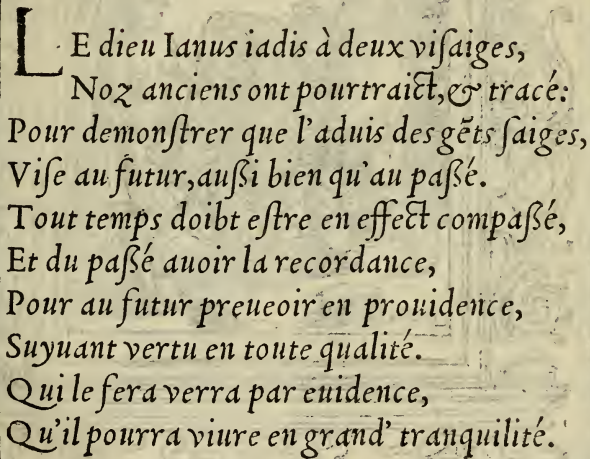 LE dieu Ianus iadis à deux viſaiges,
Noz anciens ont pourtraict, & tracé:
Pour demonſtrer que l'aduis des gẽts ſaiges,
Viſe au futur, auſsi bien qu'au paſsé.
Tout temps doibt eſtre en effect compaſsé,
Et du paſsé auoir la recordance,
Pour au futur preueoir en prouidence,
Suyuant vertu en toute qualité.
Qui le fera verra par euidence,
Qu'il pourra viure en grand' tranquilité.